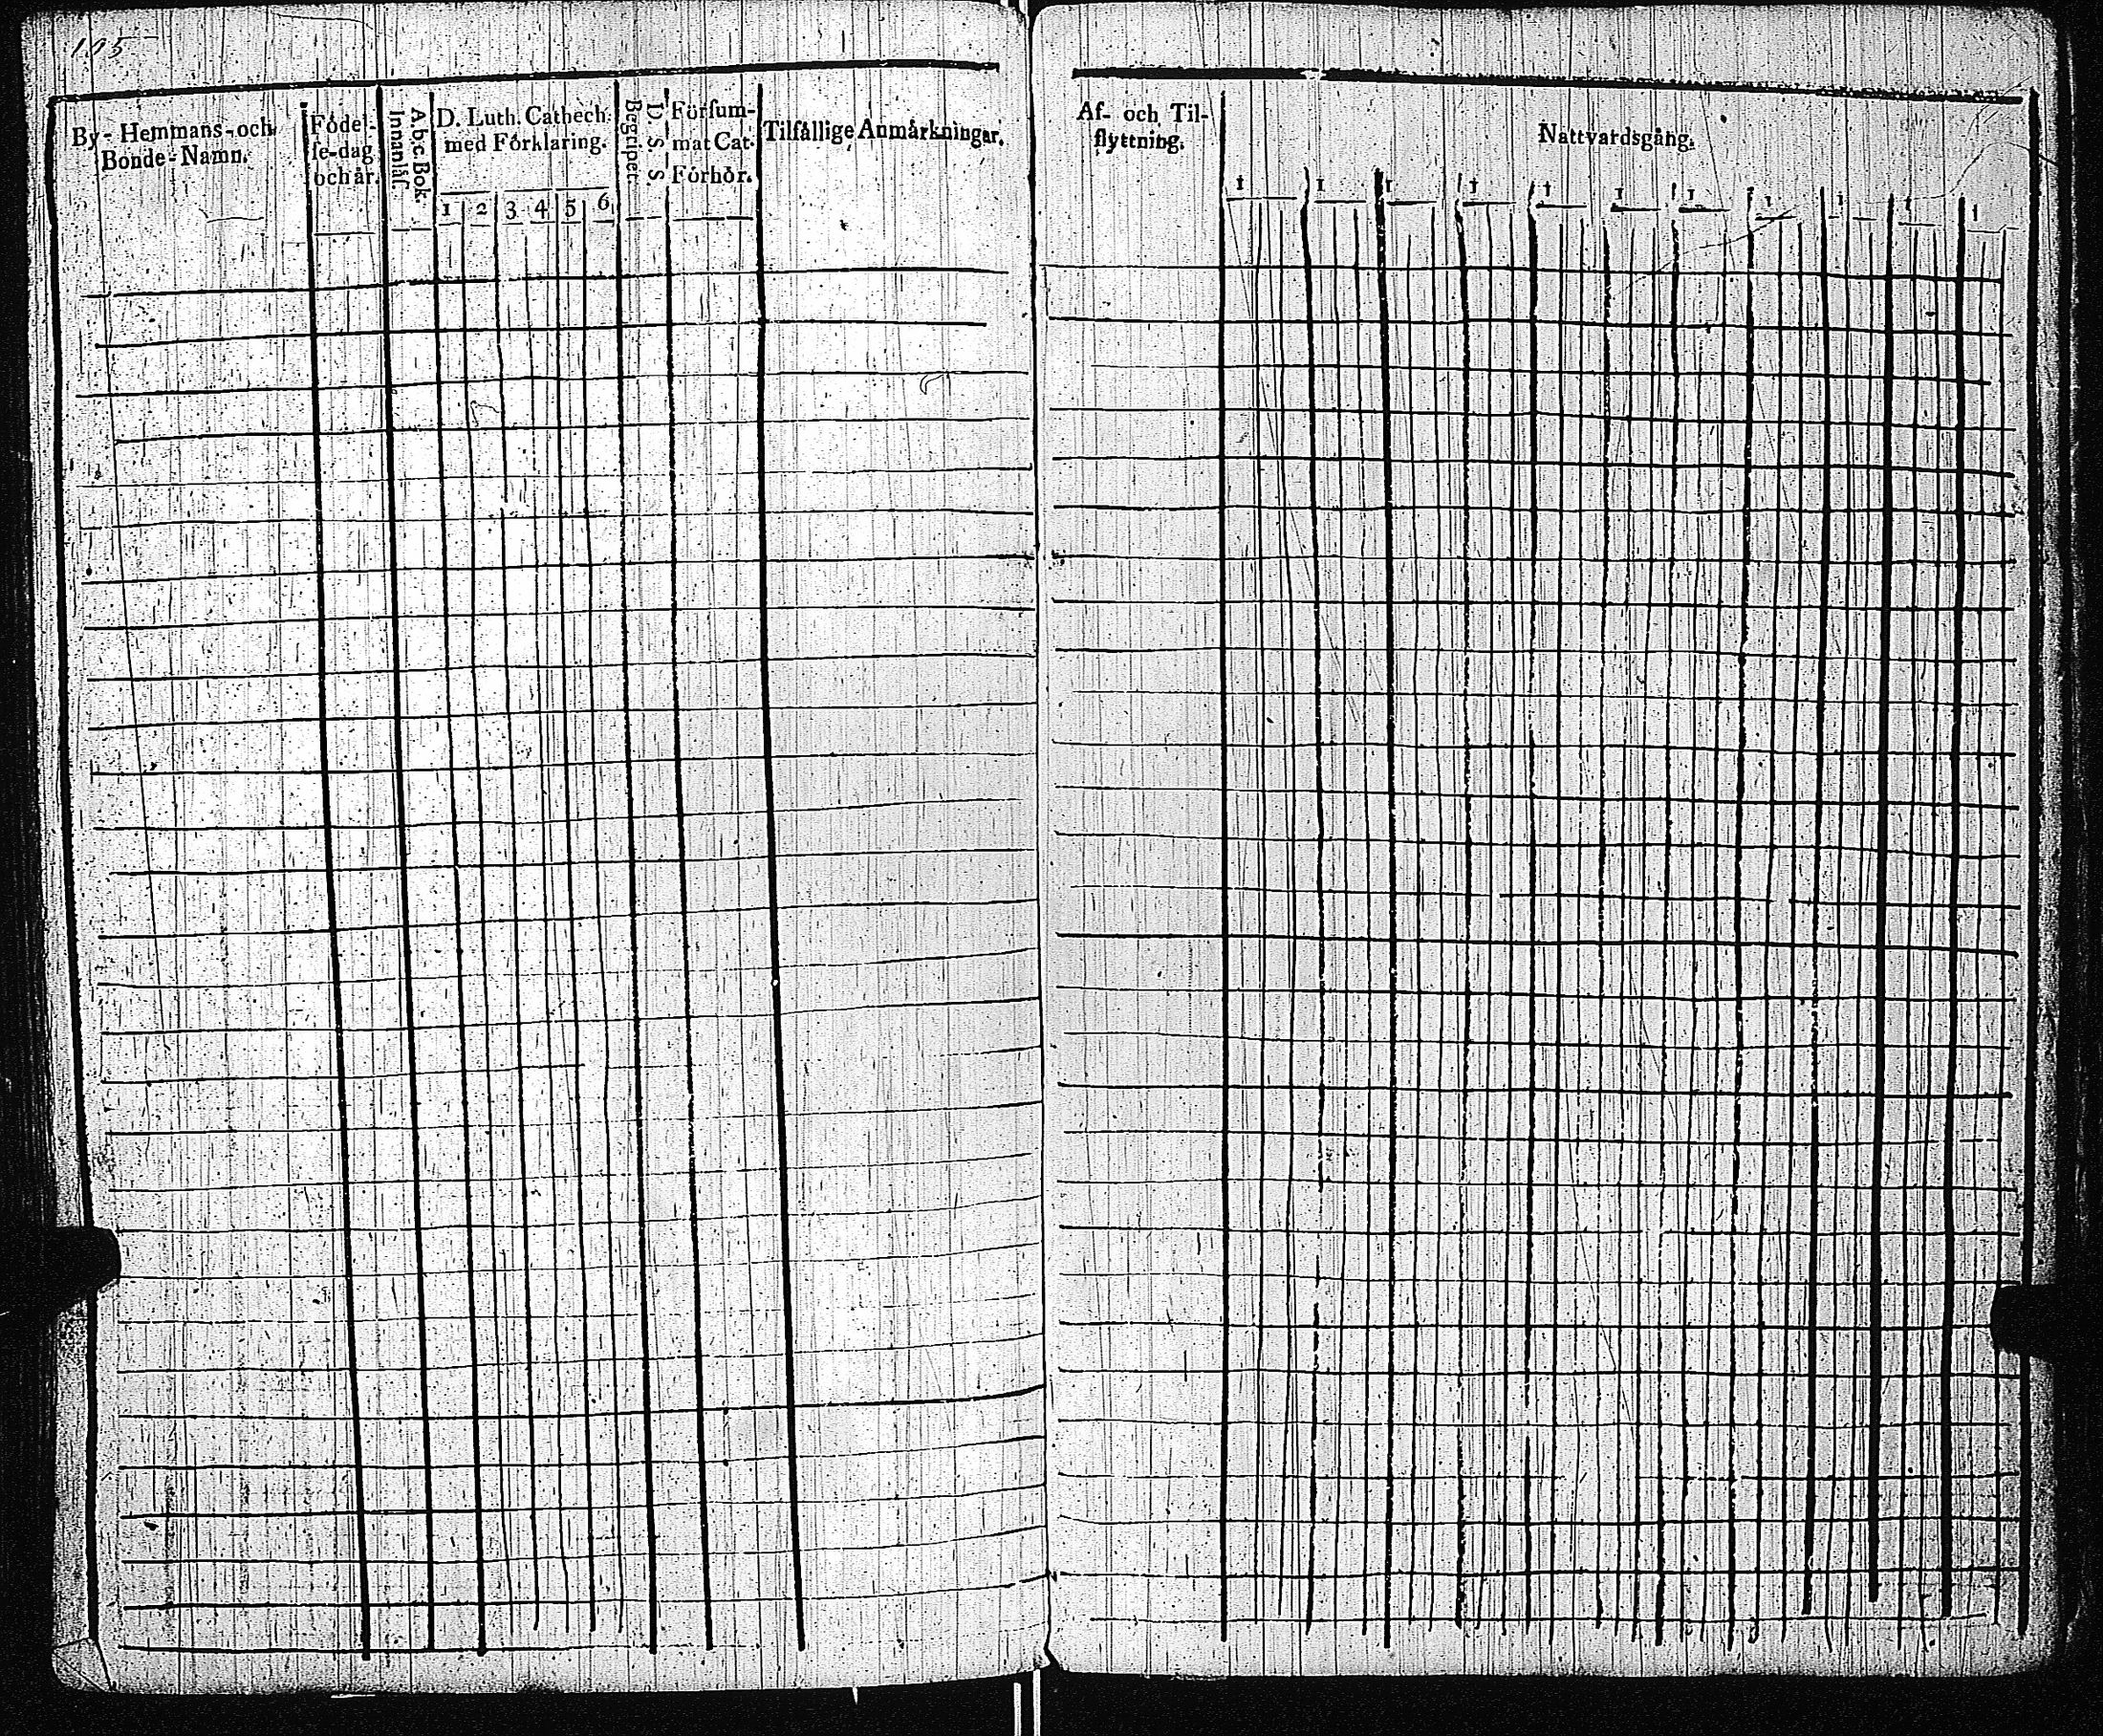 105
By- Hemmans- och
Bonde-Namn.
Födel-
se-dag
och år.
Abc. Bok.
Innanläs.
D. Luth. Cathech.
med Förklaring.
1 2 3 4 5 6
D. S. S.
Begriper.
Försum-
mat Cat.
Förhör.
Tilfällige Anmärkningar.
Af- och Til-
flyttning.
Nattvardsgång.
1 1 1 1 1 1 1 1 1 1 1